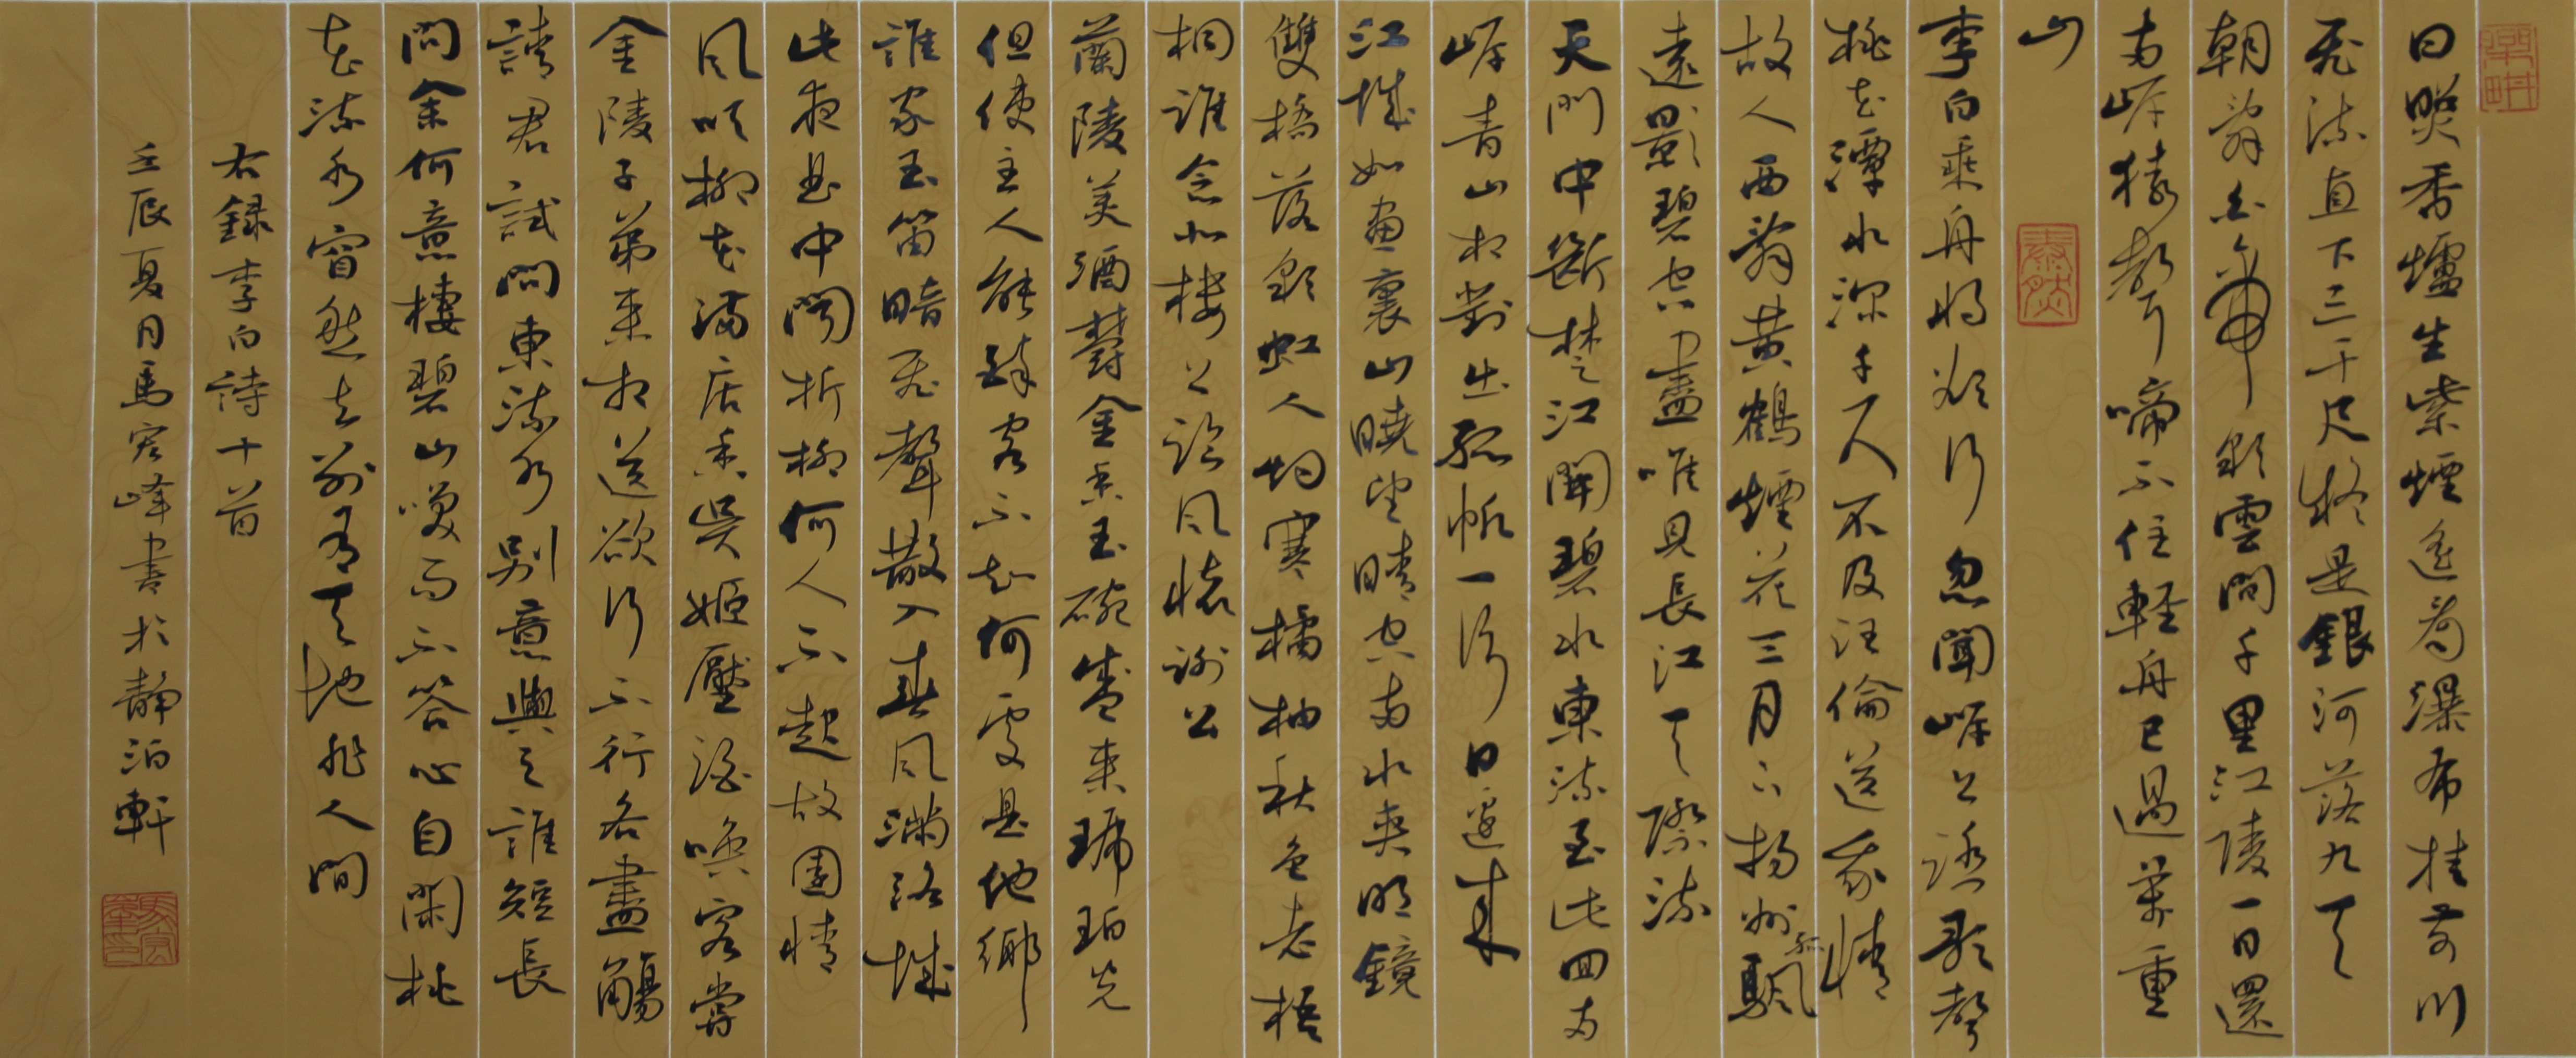 日照香爐生紫煙遙看瀑布挂前川
飛流直下三千尺疑是銀河落九天
朝辭白帝彩雲間千里江陵一日還
兩岸猿聲啼不住輕舟已過萬重
山
李白乘舟將欲行忽聞岸上踏歌聲
桃花潭水深千尺不及汪倫送我情
故人西辭黃鶴煙花三月下揚州孤颿
遠影碧空盡唯見長江天際流
天門中斷楚江開碧水東流至此回兩
岸青山相對出孤帆一片日邊来
江城如畫裏山曉望晴空兩水夾明鏡
雙橋落彩虹人烟寒橘柚秋色老梧
桐誰念北樓上臨風懷謝公
蘭陵美酒鬱金香玉碗盛来琥珀光
但使主人能醉客不知何處是他鄉
誰家玉笛暗飛聲散入春風滿洛城
此夜曲中聞折柳何人不起故園情
風吹柳花滿店香吳姬壓酒喚客嘗
金陵子弟来相送欲行不行各盡觴
請君試問東流水別意與之誰短長
問余何意棲碧山笑而不答心自閑桃
花流水窅然去別有天地非人間
右録李白詩十首
壬辰夏月馬宏峰書於靜泊軒